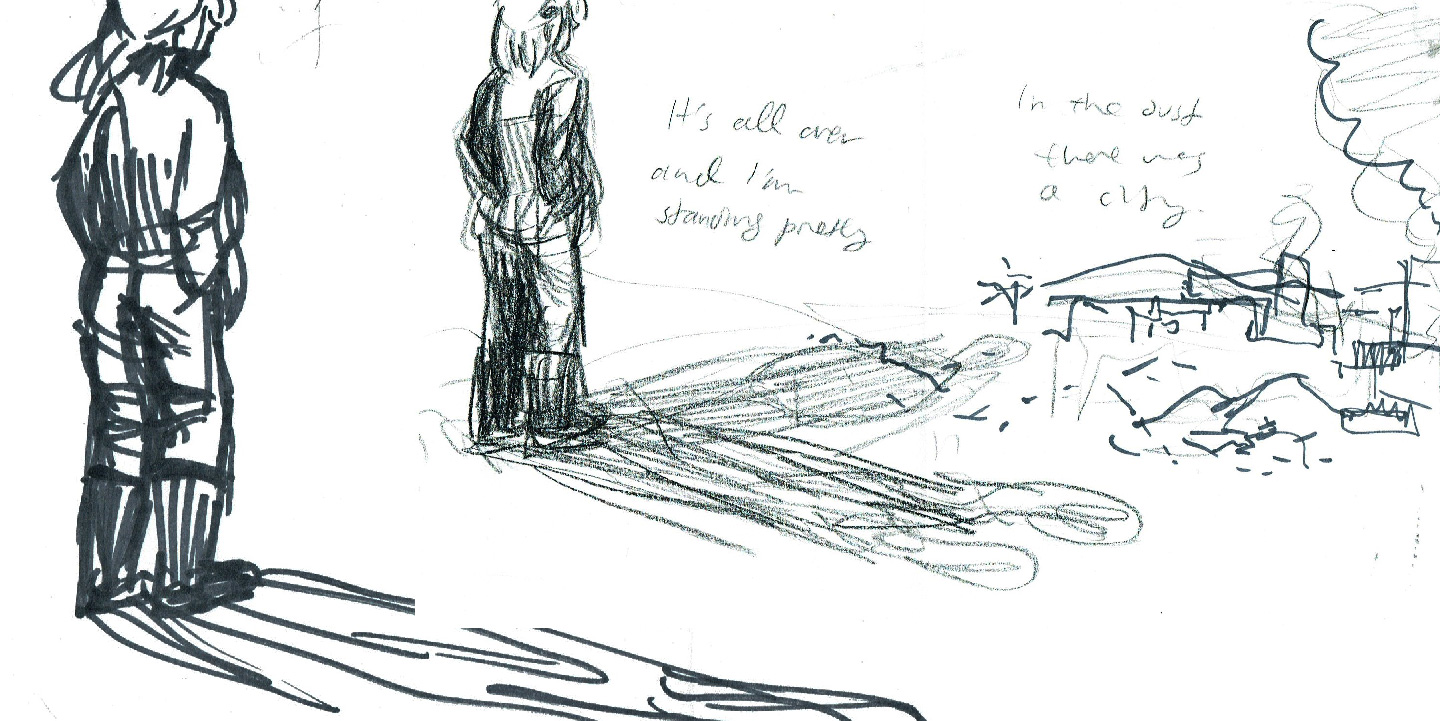 It's all over
and I'm
standing pretty
In the dust
there was
a city.